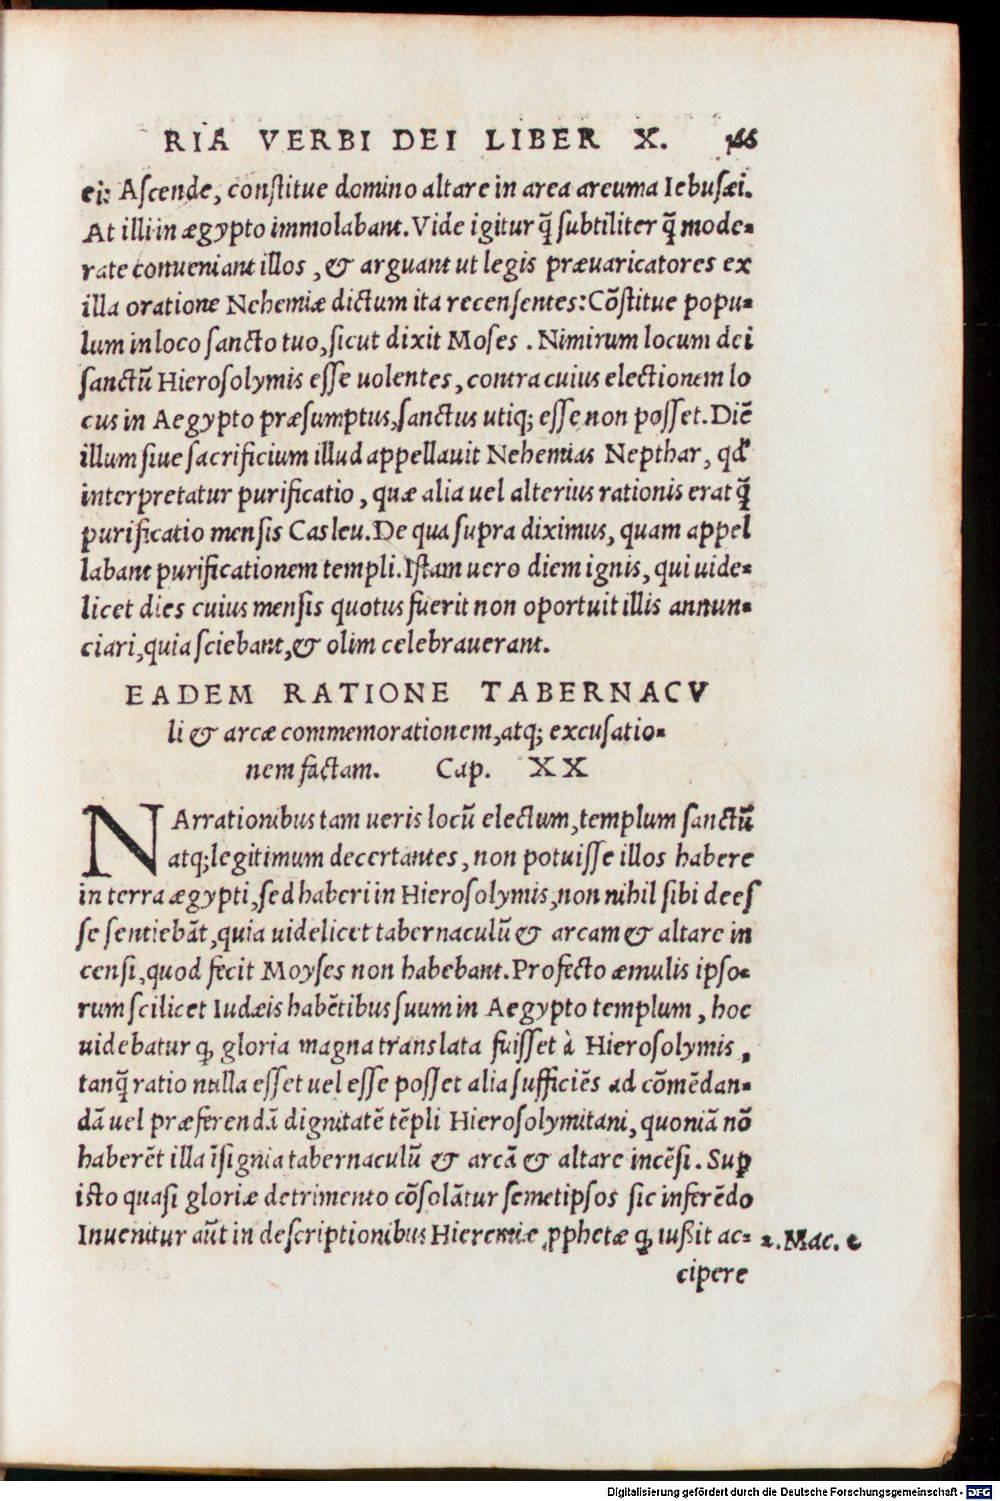 RIA VERBI DEI LIBER X. 166
ei: Ascende, constitue domino altare in area areuma Iebusæi.
At illi in ægypto immolabant. Vide igitur q̃ subtiliter q̃ mode-
rate conueniant illos, & arguant ut legis præuaricatores ex
illa oratione Nehemiæ dictum ita recensentes: Cõstitue popu-
lum in loco sancto tuo, sicut dixit Moses. Nimirum locum dei
sanctũ Hierosolymis esse uolentes, contra cuius electionem lo
cus in Aegypto præsumptus, sanctus utiq; esse non posset. Diẽ
illum siue sacrificium illud appellauit Nehemias Nepthar, qđ
interpretatur purificatio, quæ alia uel alterius rationis erat q̃
purificatio mensis Casleu. De qua supra diximus, quam appel
labant purificationem templi. Istam uero diem ignis, qui uide-
licet dies cuius mensis quotus fuerit non oportuit illis annun-
ciari, quia sciebant, & olim celebrauerant.
EADEM RATIONE TABERNACV
li & arcæ commemorationem, atq; excusatio-
nem factam. Cap. XX
NArrationibus tam ueris locũ electum, templum sanctũ
atq; legitimum decertantes, non potuisse illos habere
in terra ægypti, sed haberi in Hierosolymis, non nihil sibi dees
se sentiebãt, quia uidelicet tabernaculũ & arcam & altare in
censi, quod fecit Moyses non habebant. Profecto æmulis ipso-
rum scilicet Iudæis habẽtibus suum in Aegypto templum, hoc
uidebatur ꝙ gloria magna translata fuisset à Hierosolymis,
tanq̃ ratio nulla esset uel esse posset alia sufficiẽs ad cõmẽdan-
dã uel præferendã dignitatẽ tẽpli Hierosolymitani, quoniã nõ
haberẽt illa ĩsignia tabernaculũ & arcã & altare incẽsi. Suꝑ
isto quasi gloriæ detrimento cõsolãtur semetipsos sic inferẽdo
Inuenitur aũt in descriptionibus Hieremiæ ꝓphetæ ꝙ iußit ac- 2. Mac. 2
cipere
Digitalisierung gefördert durch die Deutsche Forschungsgemeinschaft - DFG